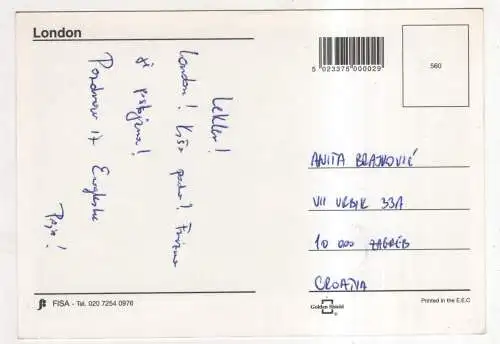 London
5 023376 000029
560
Lekler!
London! Kiša pada!
Pozdrav iz Engleske
ANITA BRAJKOVIĆ
VII VRBIK 33A
10 000 ZAGREB
CROATIA
FISA - Tel. 020 7254 0976
Golden Shield
®
Printed in the E.E.C